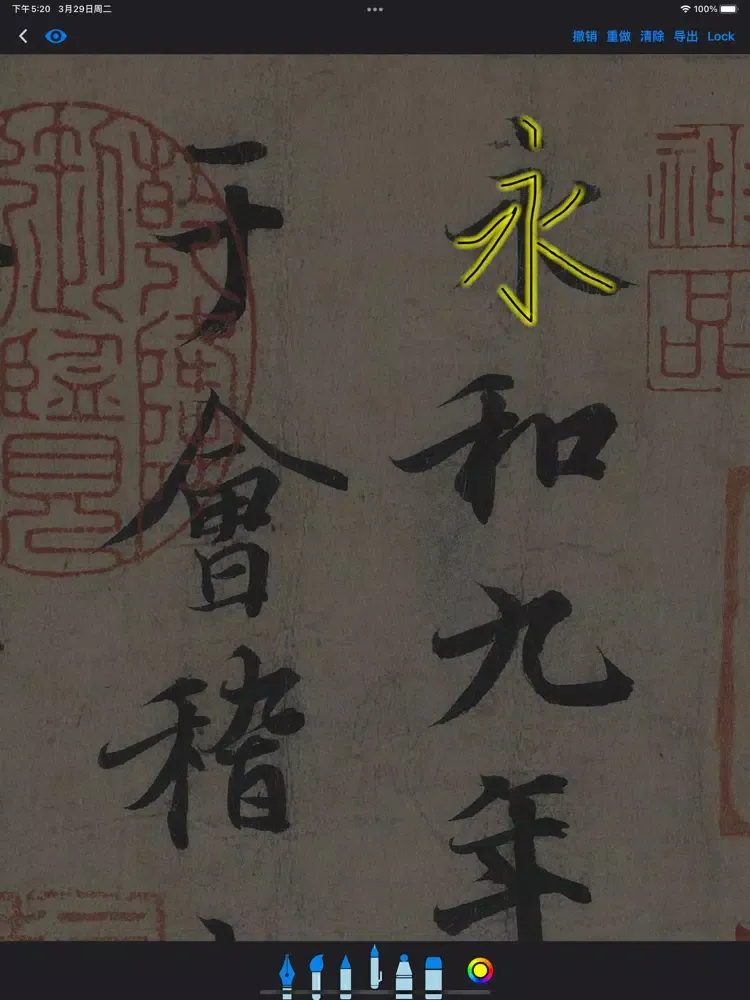 下午5:20 3月29日周二
100%
撤销 重做 清除 导出 Lock
永和九年
于會稽
神品